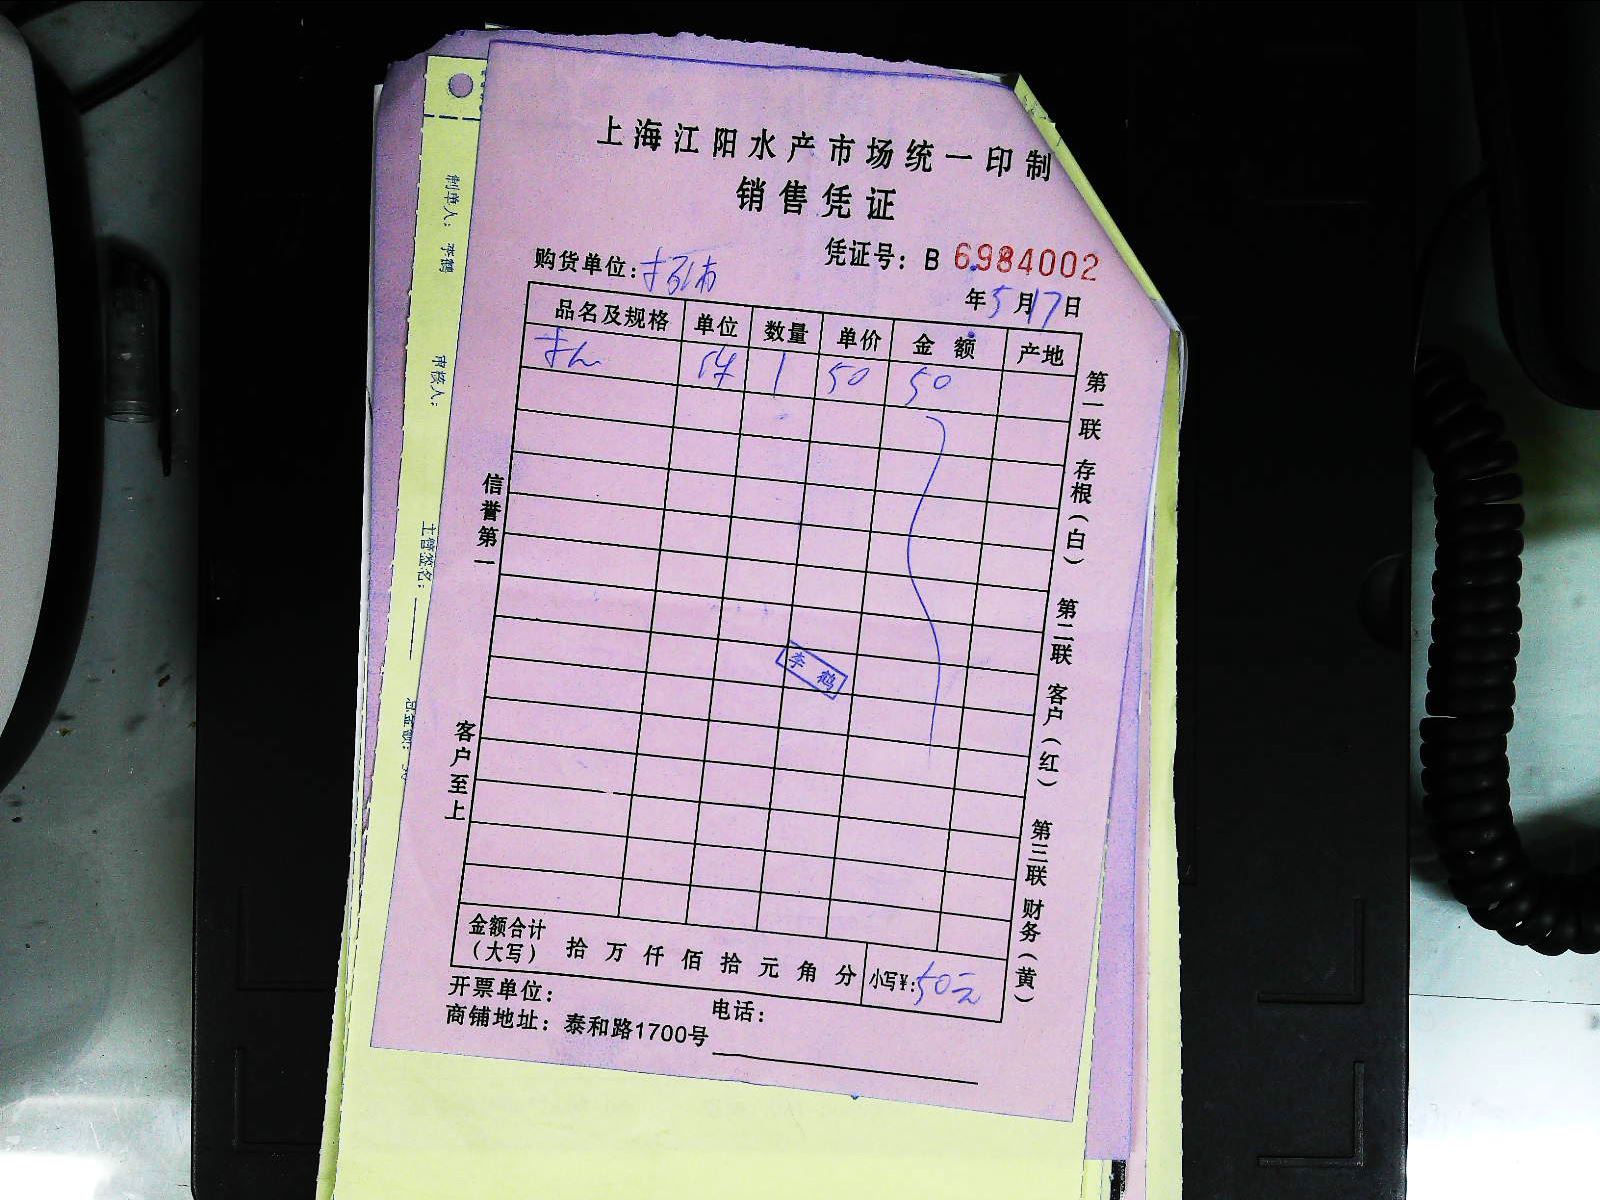 上海江阳水产市场统一印制
销售凭证
凭证号：B 6984002
购货单位：
年5月17日
品名及规格 单位 数量 单价 金额 产地
件 1 50 50
李鹤
金额合计（大写） 拾 万 仟 佰 拾 元 角 分 小写¥：50元
开票单位： 电话：
商铺地址：泰和路1700号
信誉第一
客户至上
第一联 存根（白） 第二联 客户（红） 第三联 财务（黄）
制单人：李鹤
审核人：
主管签名：